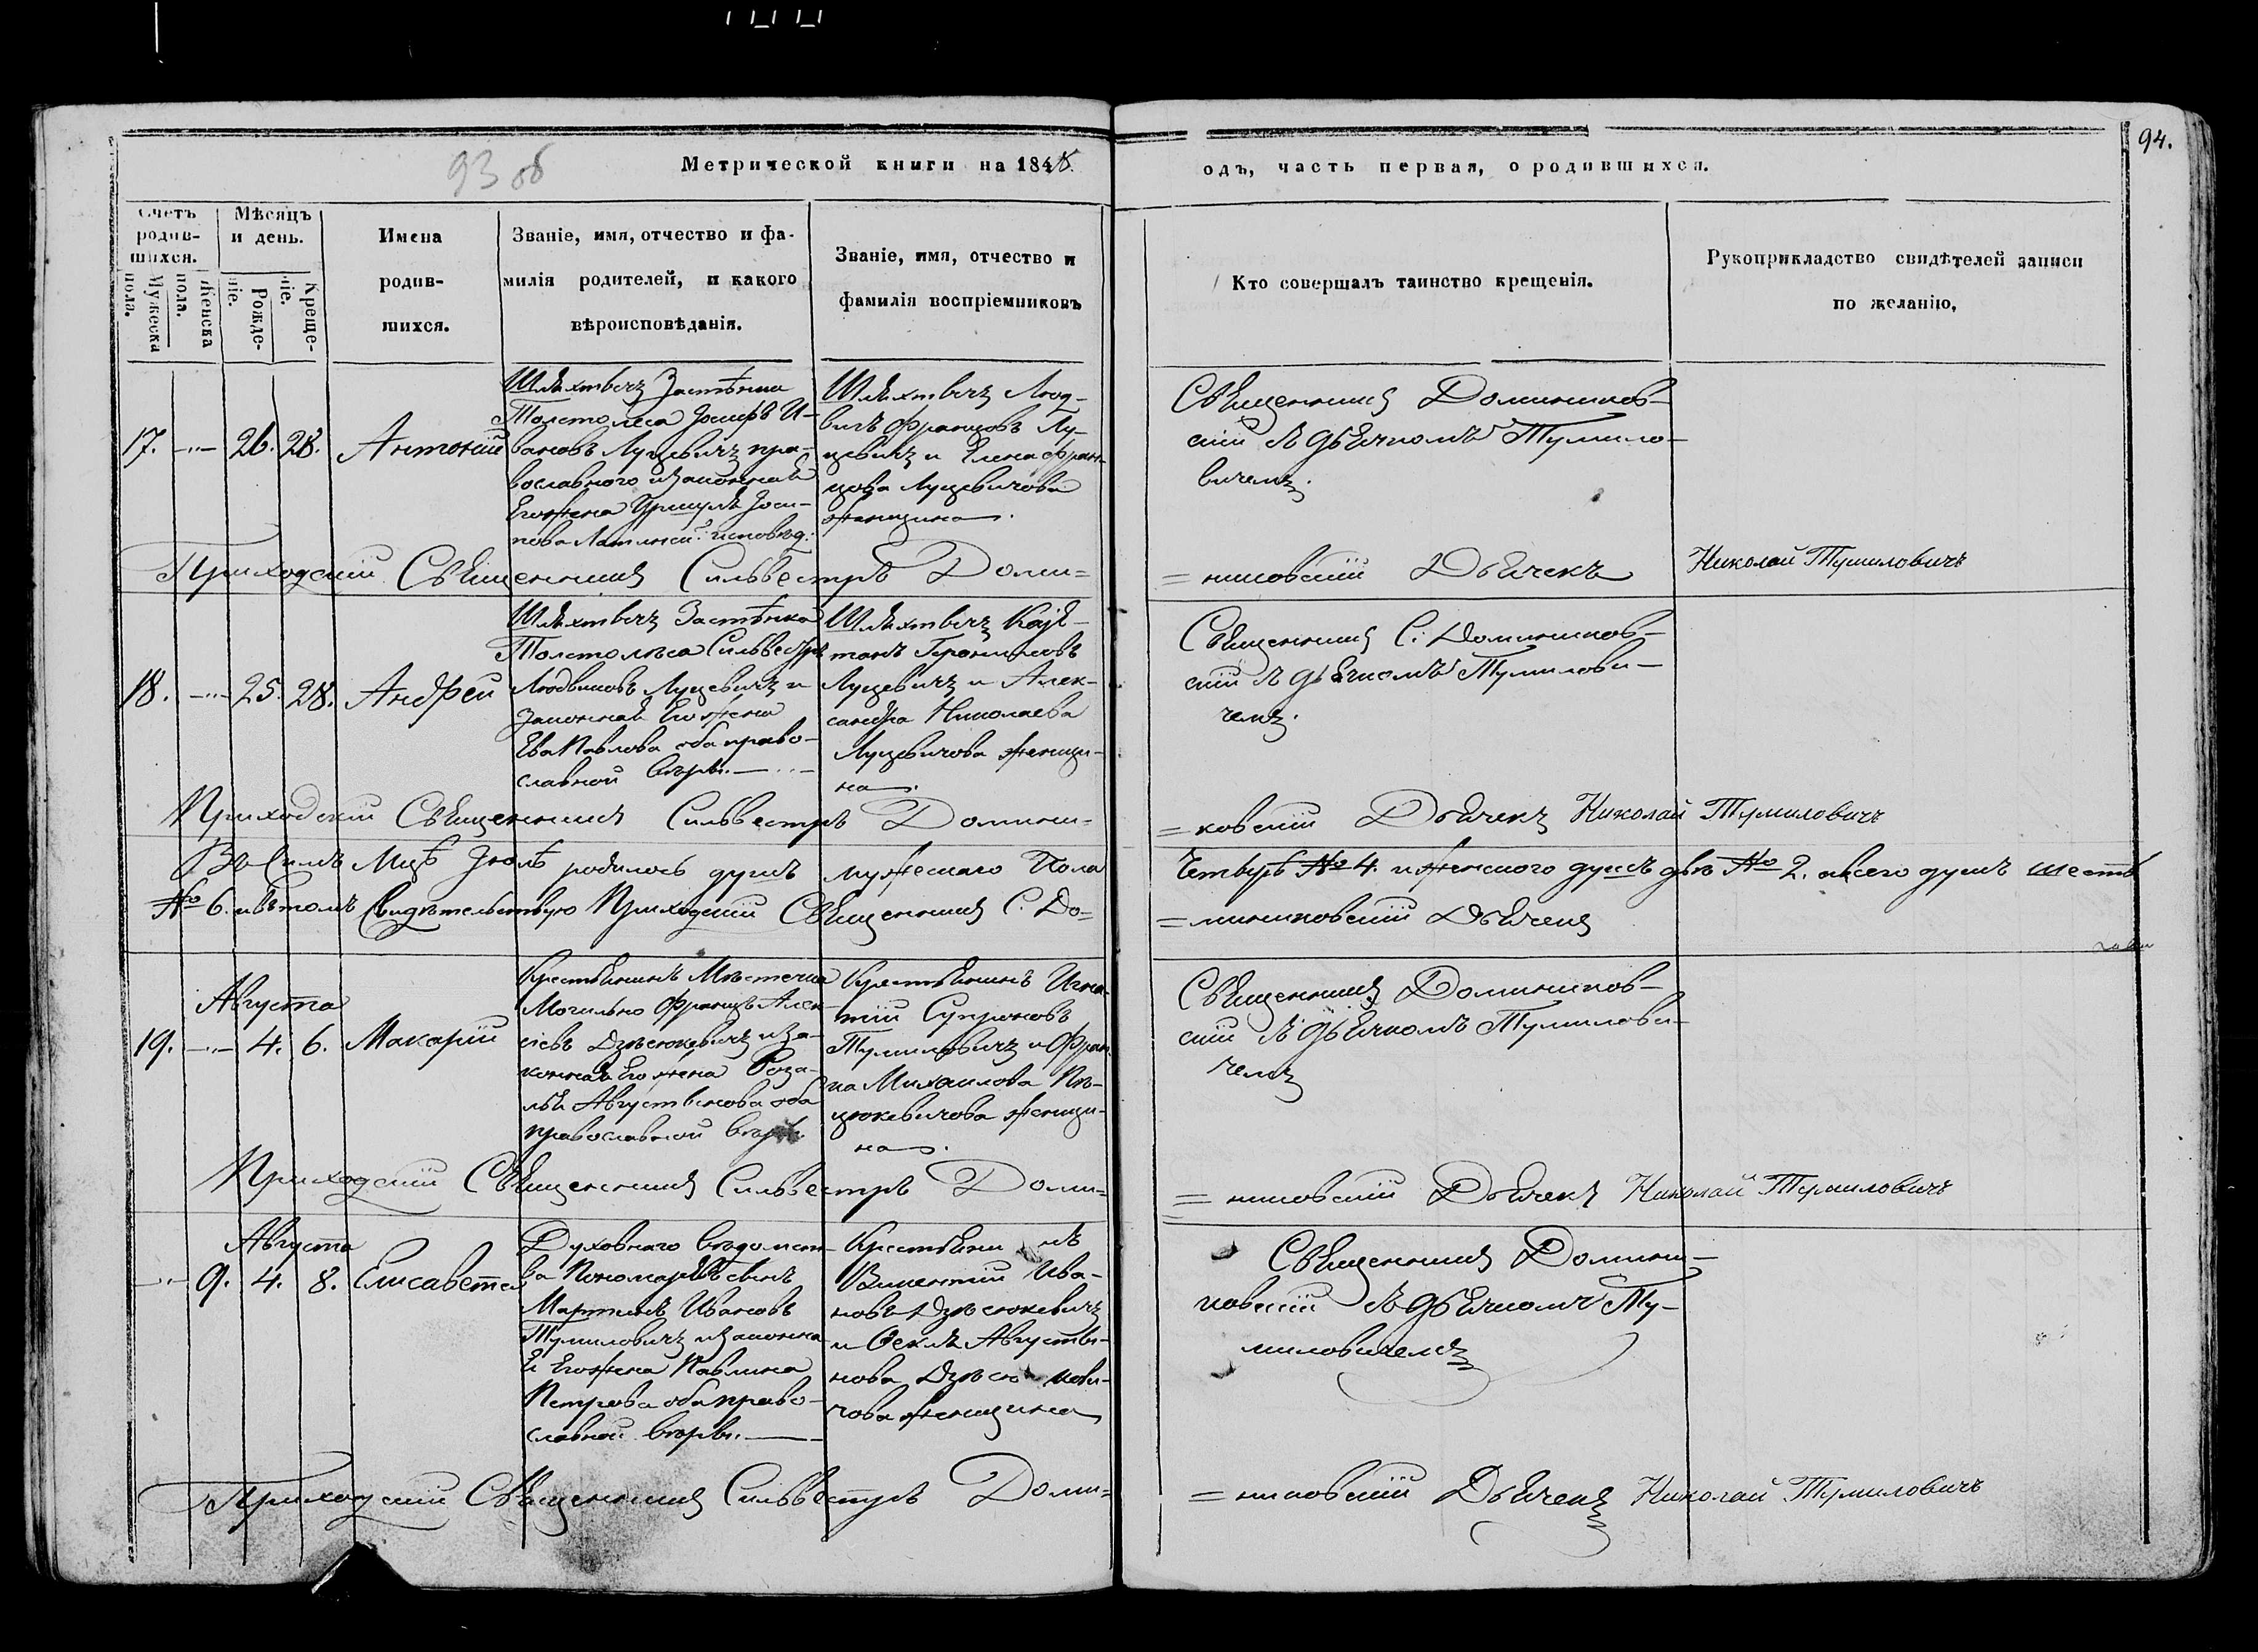 93 об
Метрической книги на 184
одъ, часть первая, о родившихся.
94.
Счетъ родив-шихся.
Мужеска пола.
Женска пола.
Мѣсяцъ и день.
Рожде-ніе.
Креще-ніе.
Имена
родив-
шихся.
Званіе, имя, отчество и фа-
милія родителей, и какого
вѣроисповѣданія.
Званіе, имя, отчество и
фамилія воспріемниковъ
Кто совершалъ таинство крещенія.
Рукоприкладство свидѣтелей записи
по желанію.
17. 26. 28. Антоній
Шляхтичъ Застѣнка
Толстолеса Іосифъ И-
вановъ Луцевичъ пра-
вославнаго и законная
Его жена Уршуля Іоси-
пова Латинск: исповѣд:
Шляхтичъ Люд-
вигъ Францовъ Лу-
цевичъ и Елена Фран-
цова Луцевичова
женщина.
Священникъ Домиников-
скій съ дьячкомъ Тумило-
вичемъ.
Приходскій Священникъ Сильвестръ Доми=
=никовскій Дьячекъ Николай Тумиловичъ
18. 25. 28. Андрей
Шляхтичъ Застѣнка
Толстолѣса Сильвестръ
Людвиковъ Луцевичъ и
законная Его жена
Ева Павлова оба право-
славной вѣры.
Шляхтичъ Каје-
танъ Геронимовъ
Луцевичъ и Алек-
сандра Николаева
Луцевичова женщи-
на.
Священникъ С: Домиников-
скій съ дьячкомъ Тумилови-
чемъ.
Приходскій Священникъ Сильвестръ Домини=
=ковскій Дьячекъ Николай Тумиловичъ
Въ Семъ Мцѣ Іюлѣ родилось душъ мужескаго Пола
Четыръ № 4. и женскаго душъ двѣ № 2. а всего душъ шесть
№ 6. и въ томъ Свидѣтельствую Приходскій Священникъ С. До=
=миниковскій Дьячекъ
Августа
19. 4. 6. Макарій
Крестьянинъ Мѣстечка
Могильно Францъ Алек-
сіевъ Дзѣсюкевичъ и за-
конная Его жена Роза-
лія Августинова оба
православной вѣры.
Крестьянинъ Игна-
тій Супроновъ
Тумиловичъ и Фран-
ка Михаилова Пѣ-
цюкевичова женщи-
на.
Священникъ Домиников-
скій съ дьячкомъ Тумилови-
чемъ
Приходскій Священникъ Сильвестръ Доми=
=никовскій Дьячекъ Николай Тумиловичъ
Августа
9. 4. 8. Елисавета
Духовнаго вѣдомст-
ва Пономарскій сынъ
Мартинъ Ивановъ
Тумиловичъ и законна-
я Его жена Павлина
Петрова оба право-
славной вѣры.
Викентій Ива-
новъ Дзѣсюкевичъ
и Фекля Августи-
нова
чова женщина
Священникъ Домини-
ковскій съ дьячкомъ Ту-
миловичемъ
Приходскій Священникъ Сильвестръ Доми=
=никовскій Дьячекъ Николай Тумиловичъ